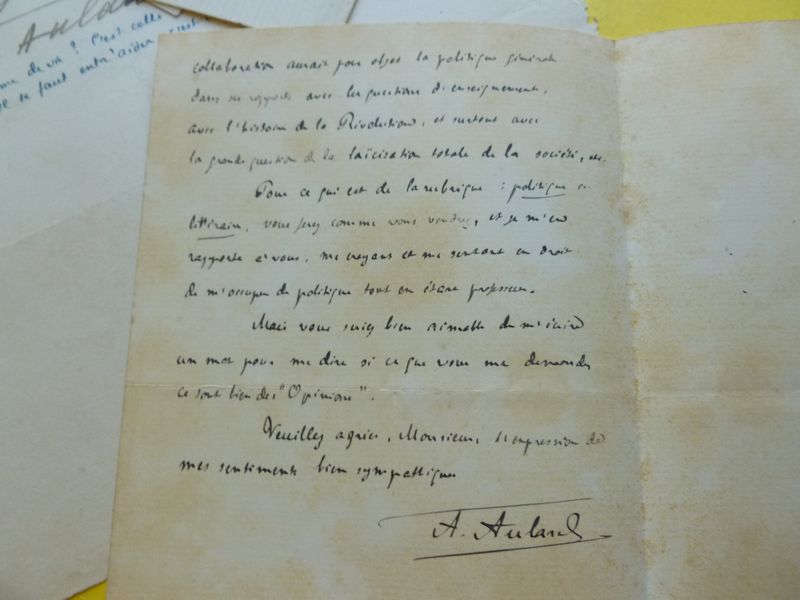 Aulard
me de voi ? C'est celle
se faut entr'aider, c'est
collaboration aurait pour objet la politique générale
dans ses rapports avec les questions d'enseignement,
avec l'histoire de la Révolution, et surtout avec
la grande question de la laïcisation totale de la société, etc.
Pour ce qui est de la rubrique : politique ou
littéraire, vous ferez comme vous voudrez, et je m'en
rapporte à vous, me croyant et me sentant en droit
de m'occuper de politique tout en étant professeur.
Mais vous seriez bien aimable de m'écrire
un mot pour me dire si ce que vous me demandez
ce sont bien des "Opinions".
Veuillez agréer, Monsieur, l'expression de
mes sentiments bien sympathiques
A. Aulard